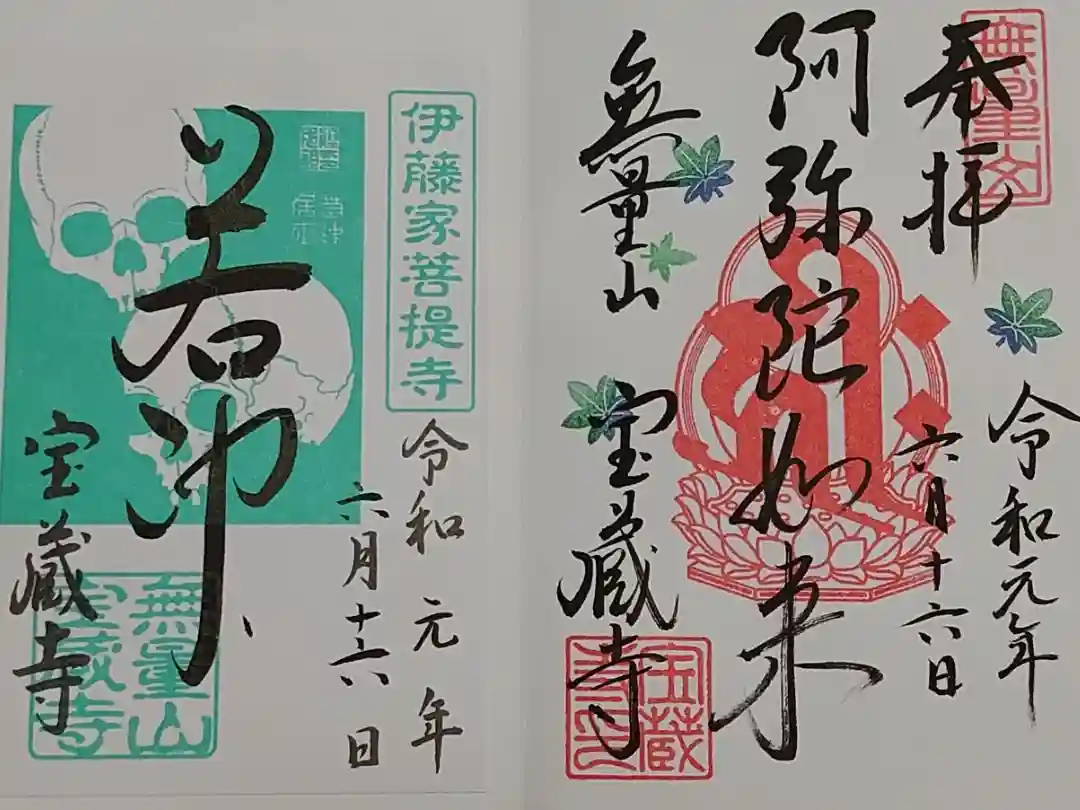 奉拝
無量山
令和元年
六月十六日
阿弥陀如来
無量山
宝蔵寺
宝蔵
寺印
伊藤家菩提寺
令和元年
六月十六日
若冲
宝蔵寺
無量山
宝蔵寺